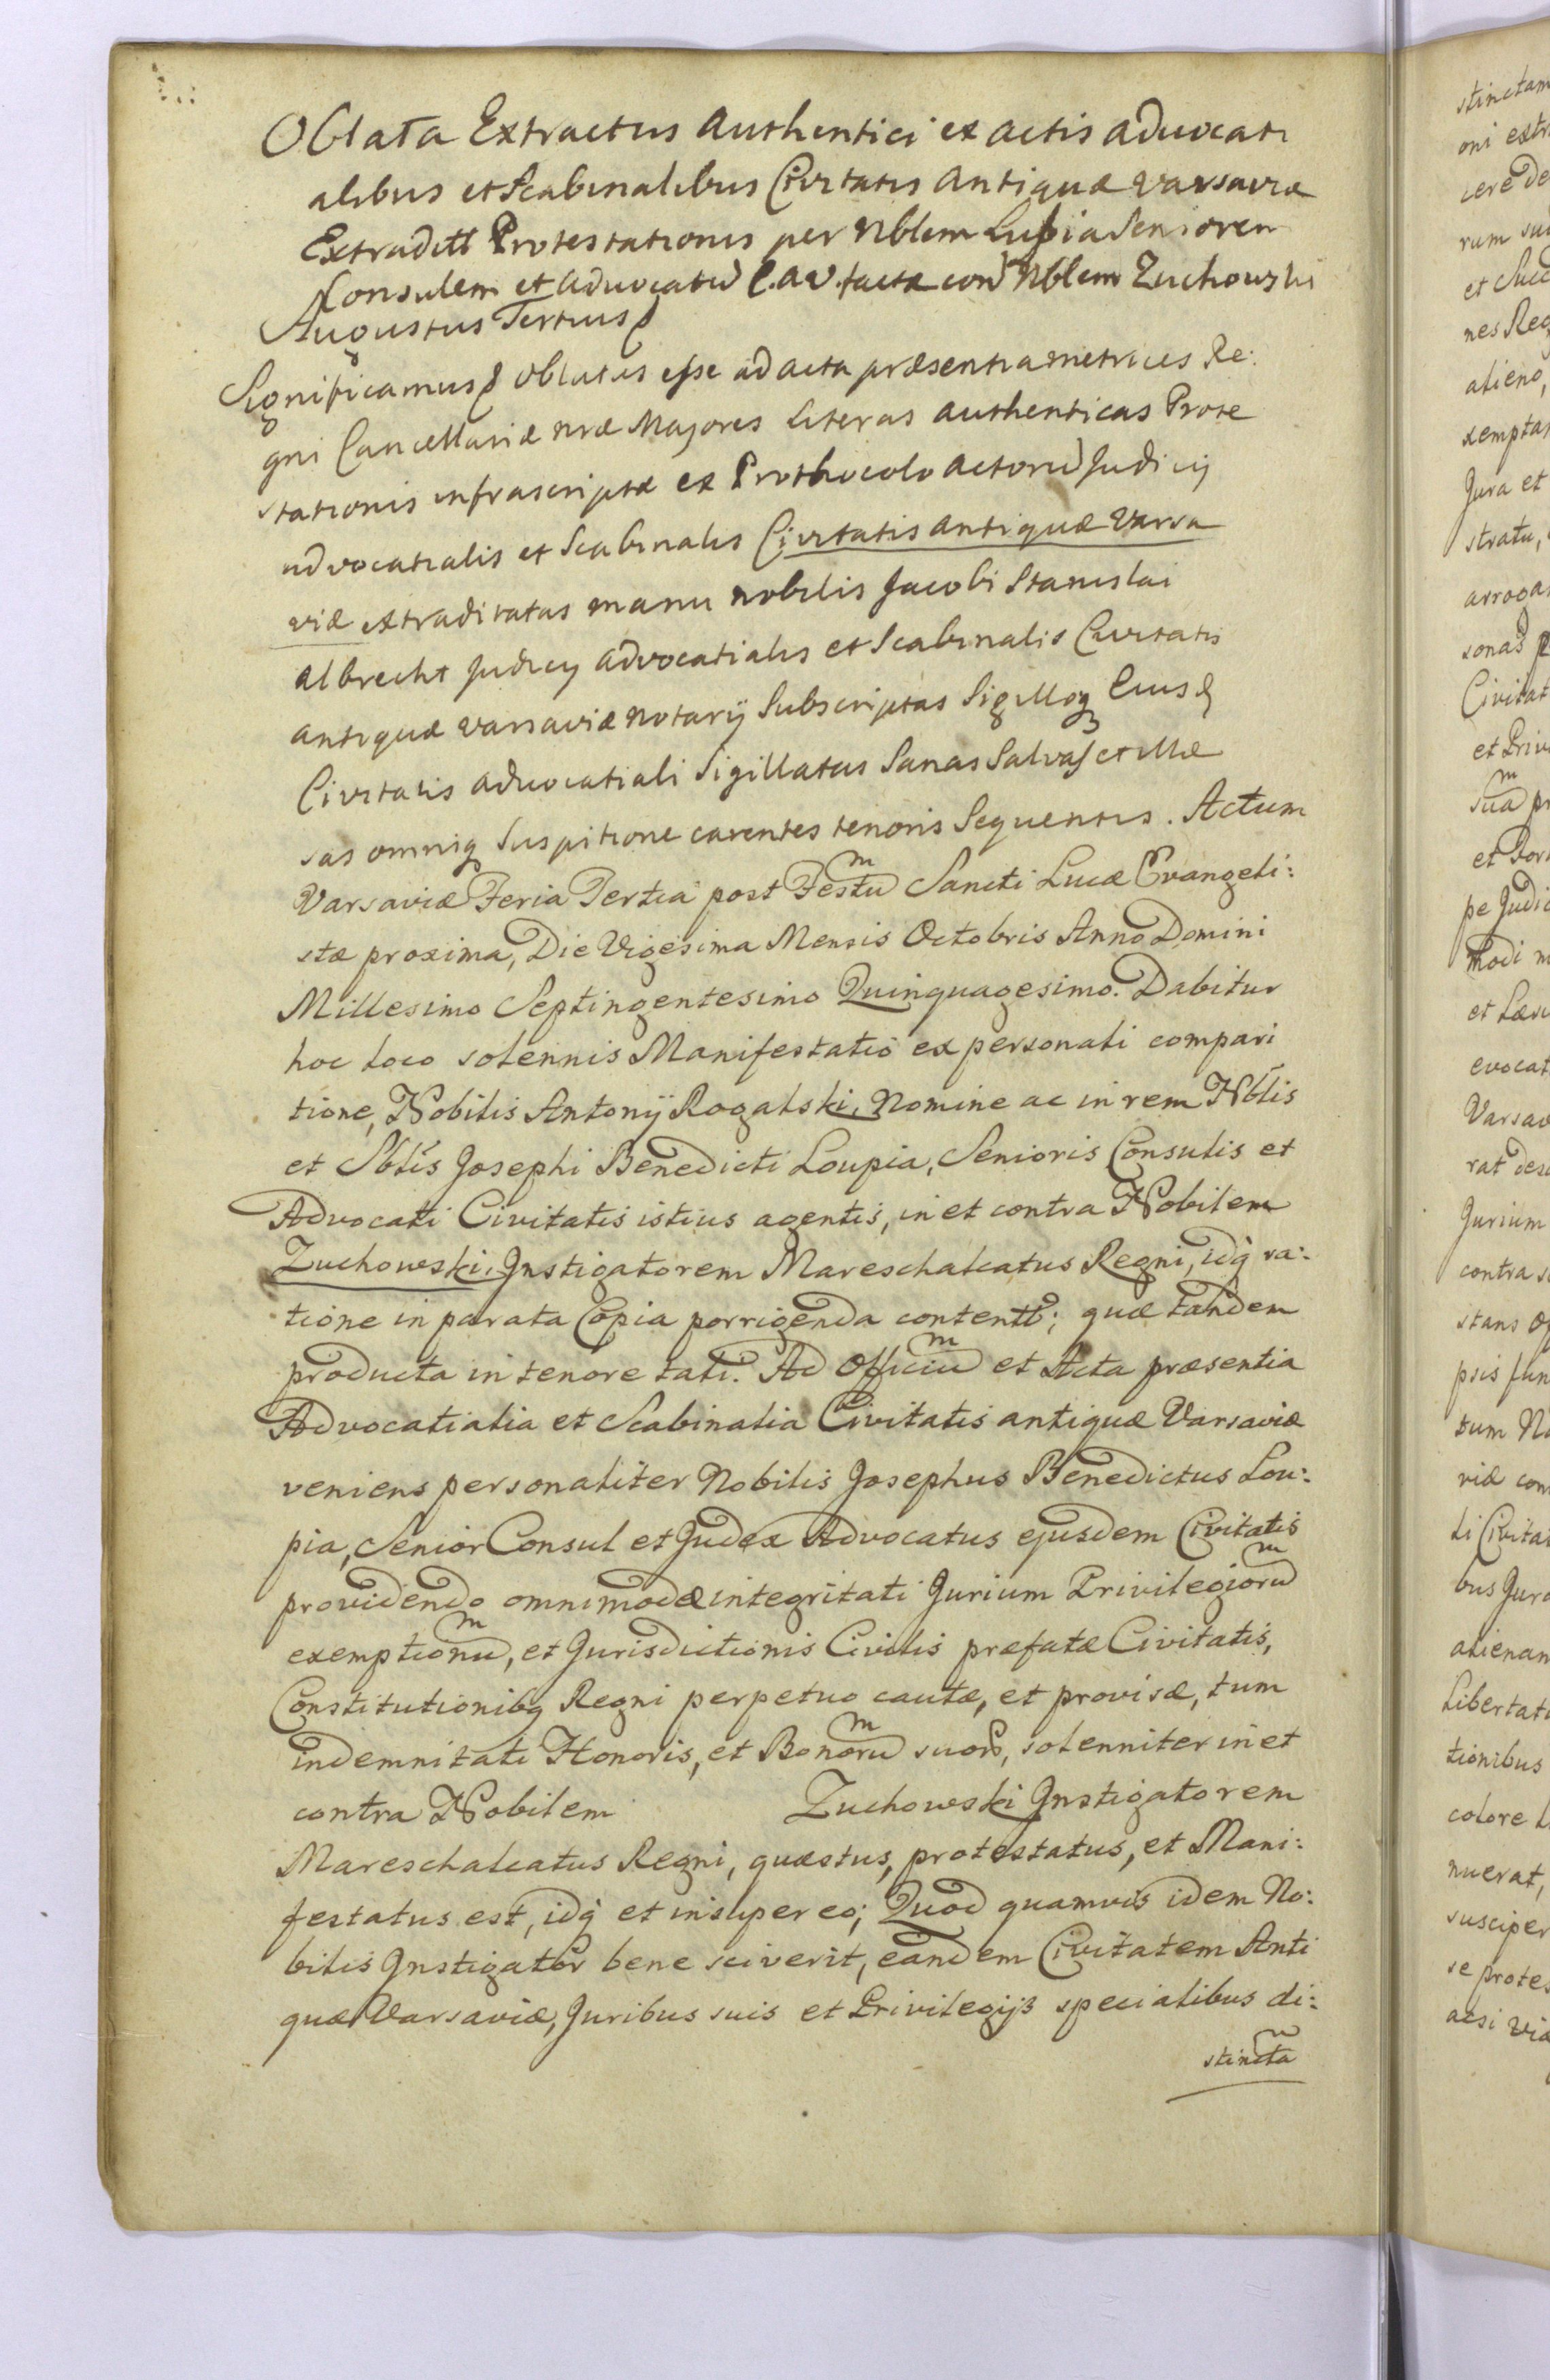 Oblata Extractus Authentici ex actis advocati
alibus et Scabinalibus Civitatis Antiquæ Varsaviæ
Extradett Protestationis per Nblem Lupia Seniorem
Consulem et Advocatu C.A.V. factæ con Nblem Zuchowski
Augustus Tertius
Significamus oblatas esse ad acta præsentia metrices Re:
gni Cancellariæ nræ Majores Literas authenticas Prote
stationis infrascriptæ ex Prothocolo actoru Judicij
advocatialis et Scabinalis Civitatis antiquæ Varsa
viæ extraditatas manu nobilis Jacobi Stanislai
Albrecht Judicij advocatialis et Scabinalis Civitatis
antiquæ Varsaviæ Notarij Subscriptas Sigilloq Eiusd
Civitatis advocatiali Sigillatas Sanas Salvas et illæ
sas omniq suspitione carentes tenoris Sequentis. Actum
Varsaviæ Feria Tertia post Festu͠m Sancti Lucæ Evangeli:
stæ proxima, Die Vigesima Mensis Octobris Anno Domini
Millesimo Septingentesimo Quinquagesimo. Dabitur
hoc loco solennis Manifestatio ex personali compari
tione, Nobilis Antonij Rogalski, Nomine ac in rem Nblis
et Sblis Josephi Benedicti Loupia, Senioris Consulis et
Advocati Civitatis istius agentis, in et contra Nobilem
Zuchowski, Instigatorem Mareschalcatus Regni, idq ra:
tione in parata Copia porrigenda contentt; quæ tandem
producta in tenore tali. Ad Officiu͠m et Acta præsentia
Advocatialia et Scabinalia Civitatis antiquæ Varsaviæ
veniens personaliter Nobilis Josephus Benedictus Lou:
pia, Senior Consul et Judex Advocatus ejusdem Civitatis
providendo omnimodæ integritati Jurium Privilegioru͠m
exemptionu͠m, et Jurisdictionis Civilis præfatæ Civitatis,
Constitutionibq Regni perpetuo cautæ, et provisæ, tum
indemnitati Honoris, et Bonoru͠m suor, solenniter in et
contra Nobilem Zuchowski Instigatorem
Mareschalcatus Regni, quæstus, protestatus, et Mani:
festatus est, idq et insuper eo; Quod quamvis idem No:
bilis Instigator bene sciverit, eandem Civitatem Anti
quæ Varsaviæ, Juribus suis et Privilegijs specialibus di:
stincta͠m